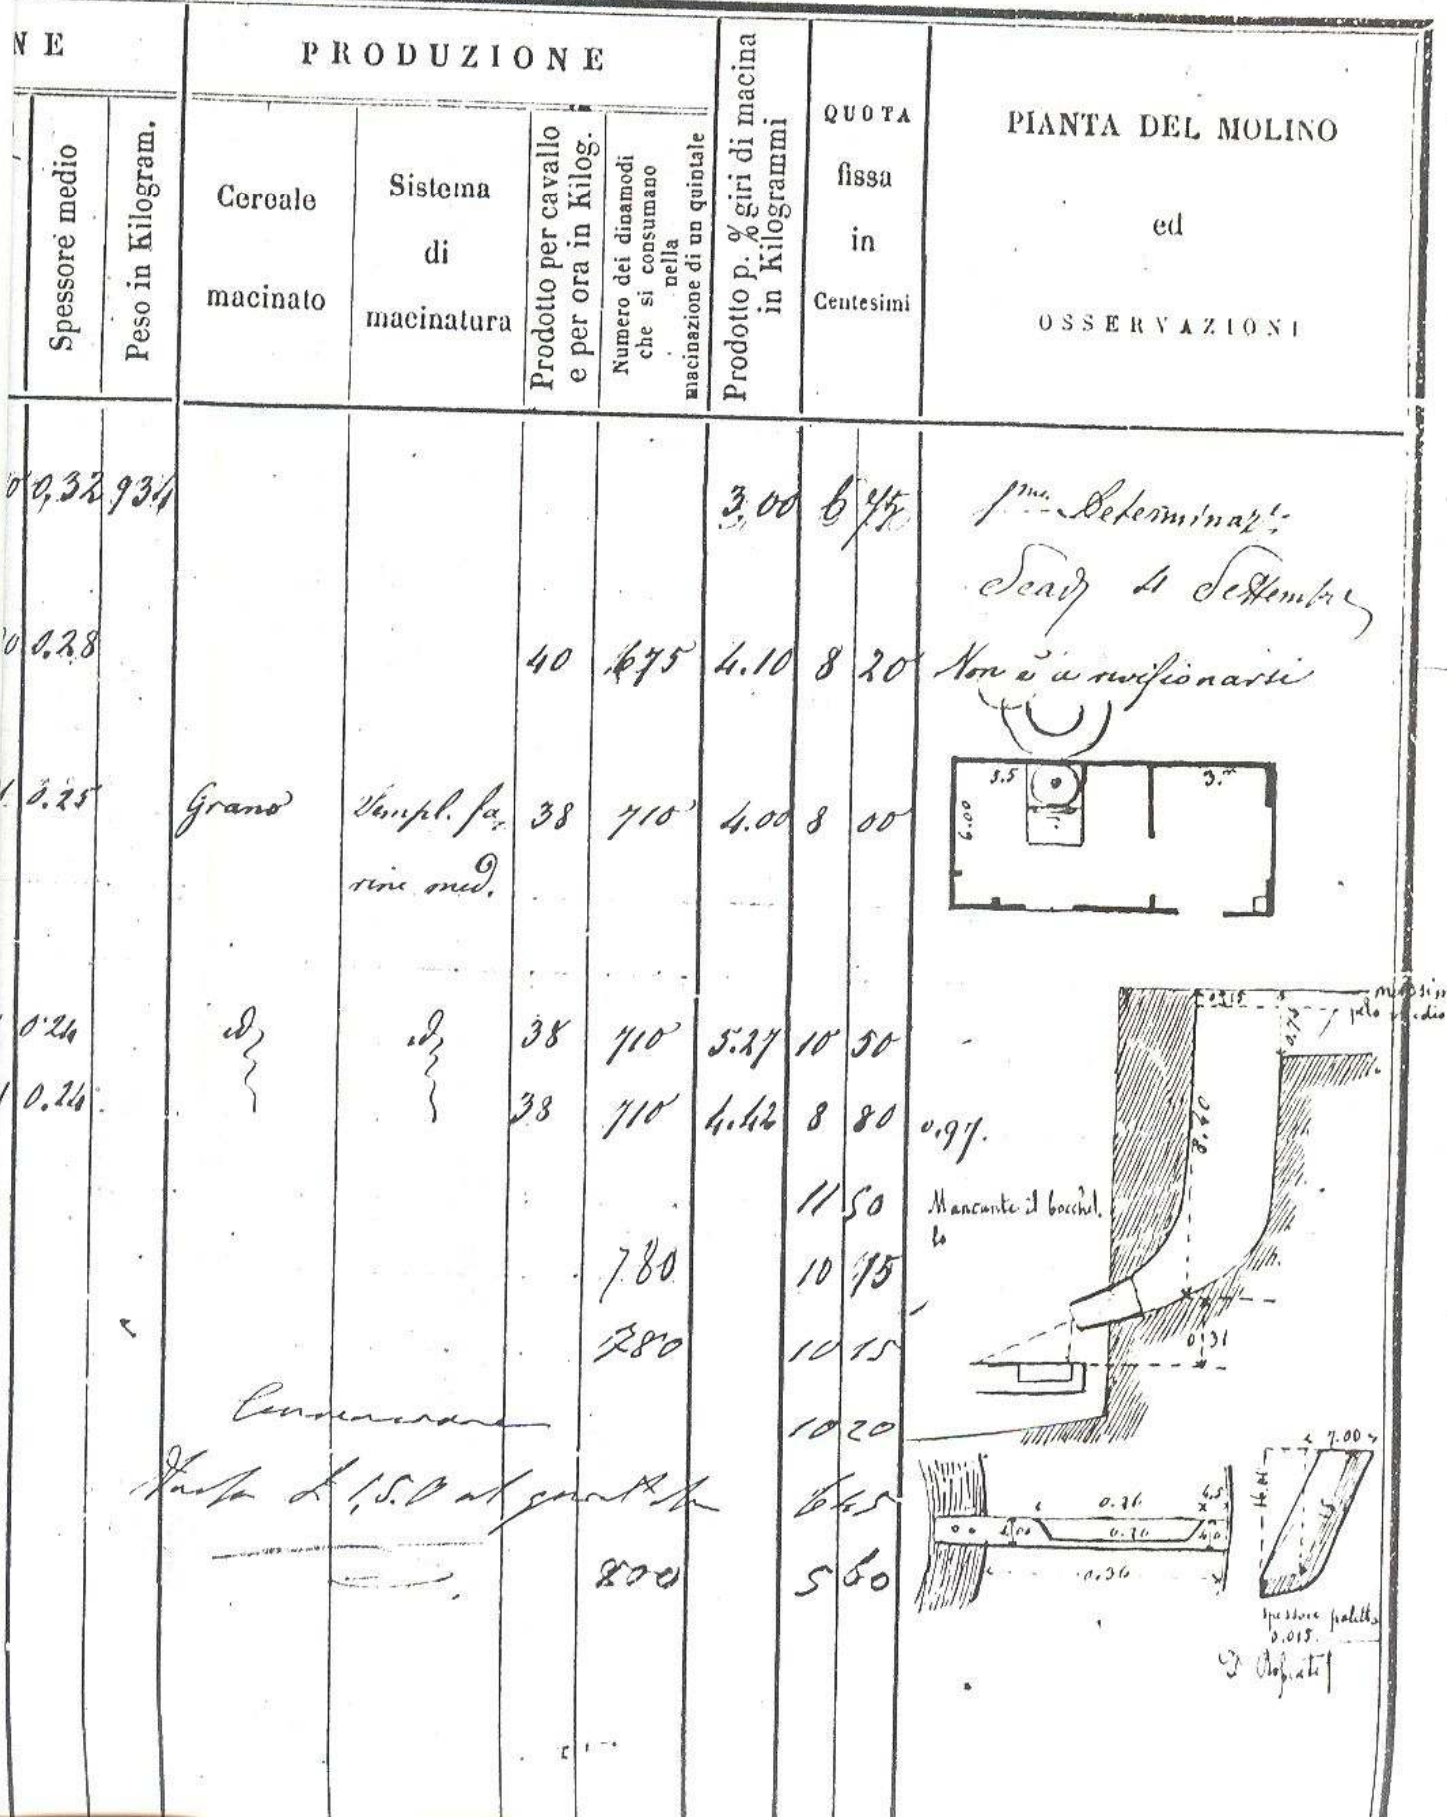 NE
PRODUZIONE
Spessore medio
Peso in Kilogram.
Cereale
macinato
Sistema
di
macinatura
Prodotto per cavallo
e per ora in Kilog.
Numero dei dinamodi
che si consumano
nella
macinazione di un quintale
Prodotto p. % giri di macina
in Kilogrammi
QUOTA
fissa
in
Centesimi
PIANTA DEL MOLINO
ed
OSSERVAZIONI
0,32 934 3.00 6 75 Determinaz
4 Settembre
0.28 40 675 4.10 8 20 Non è a revisionarsi
3.5 3.m
6.00
0.25 Grano Simpl. fa- 38 710 4.00 8 00
rine med.
0.24 id id 38 710 5.27 10 50
0.24 38 710 4.42 8 80 0.97.
0.75
8.40
11 50 Mancante il bocchel.
lo
780 10 75
780 10 15
0.31
10 20
6 45
800 5 60
7.00
0.26
4.5
0.20
0.36
spessore paletta
0.015.